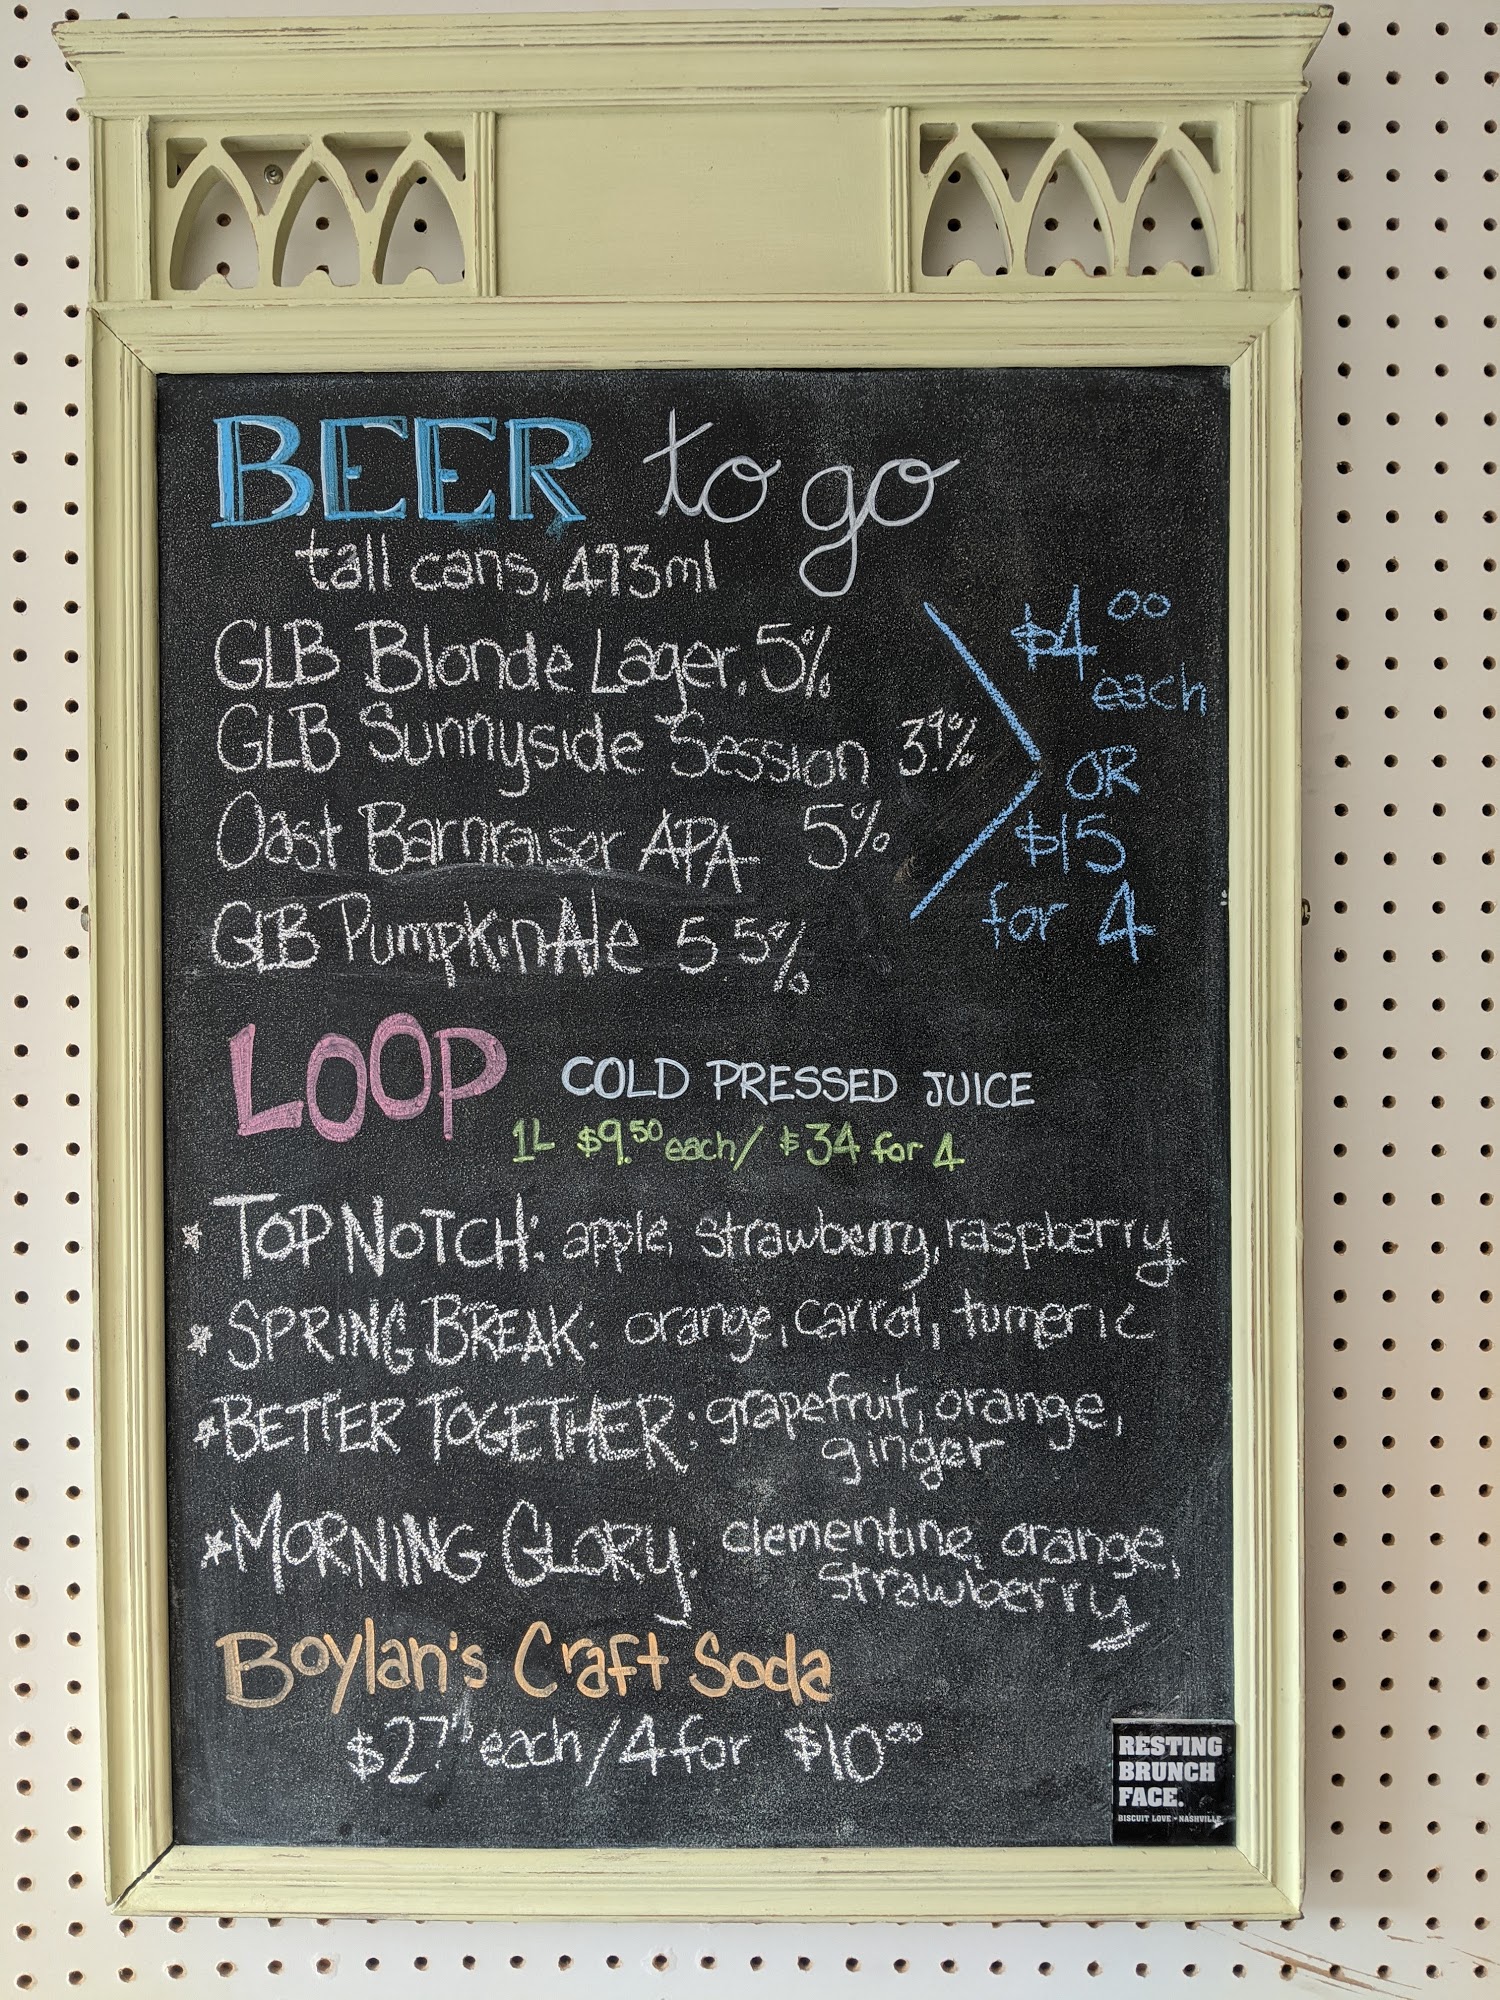 BEER to go
tall cans, 473ml
GLB Blonde Lager, 5%
GLB Sunnyside Session 3.9%
Oast Barnraiser APA 5%
GLB Pumpkin Ale 5.5%
$4.00
each
OR
$15
for 4
LOOP COLD PRESSED JUICE
1L $9.50 each/ $34 for 4
TOP NOTCH: apple, strawberry, raspberry
SPRING BREAK: orange, carrot, tumeric
BETTER TOGETHER: grapefruit, orange,
ginger
MORNING GLORY: clementine, orange,
strawberry
Boylan's Craft Soda
$2.75 each/4 for $10.00
RESTING
BRUNCH
FACE.
BISCUIT LOVE - NASHVILLE